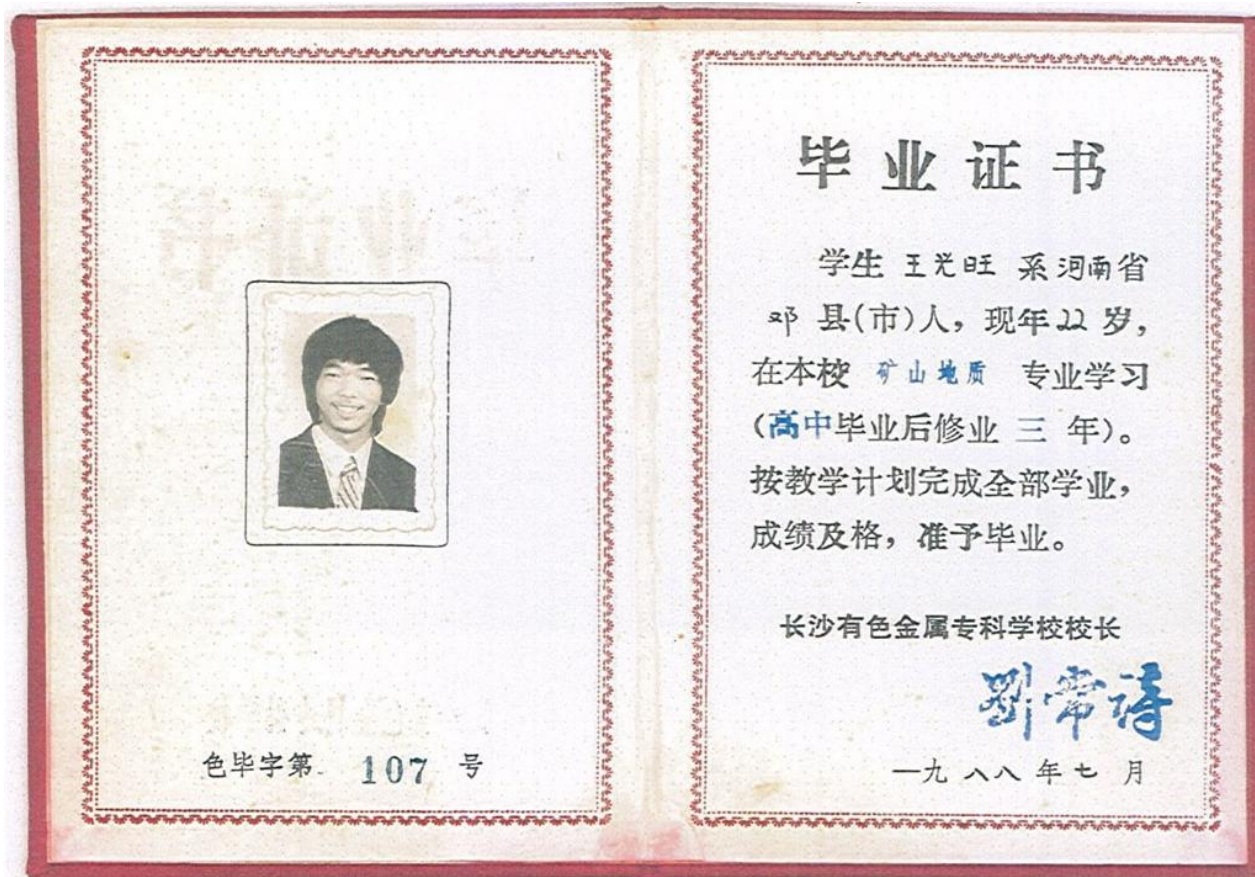 色毕字第 107 号
毕业证书
学生 王光旺 系河南省
邓 县(市)人，现年22岁，
在本校 矿山地质 专业学习
(高中毕业后修业 三 年)。
按教学计划完成全部学业，
成绩及格，准予毕业。
长沙有色金属专科学校校长
劉常诗
一九八八年七月